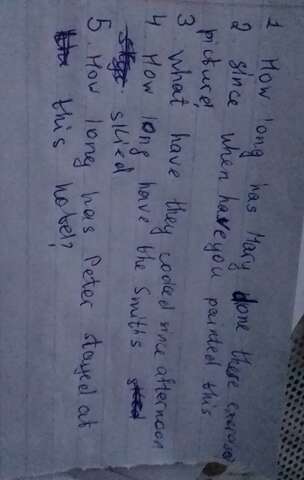 1 How long has Mary done these exercise
2 since when have you painted this
picture?
3 what have they cooked since afternoon
4 How long have the Smiths
skied
5. How long has Peter stayed at
this hotel?